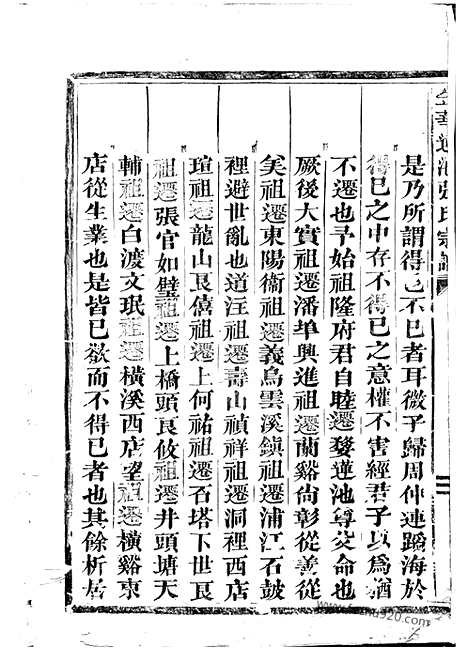 金華蓮池張氏宗譜
是乃所謂得已不已者耳微子歸周仲連蹈海於
得已之中存不得已之意權不害經君子以為猶
不遷也予始祖隆府君自睦遷婺蓮池尊父命也
厥後大實祖遷潘埠興進祖遷蘭谿尚彰從善從
矣祖遷東陽衞祖遷義烏雲溪鎮祖遷浦江石鼓
裡避世亂也道注祖遷壽山禎祥祖遷洞裡西店
瑄祖遷龍山艮僖祖遷上何祐祖遷石塔下世艮
祖遷張官如璧祖遷上橋頭艮攸祖遷井頭塘天
輔祖遷白渡文珉祖遷橫溪西店望祖遷橫谿東
店從生業也是皆已欲而不得已者也其餘析居